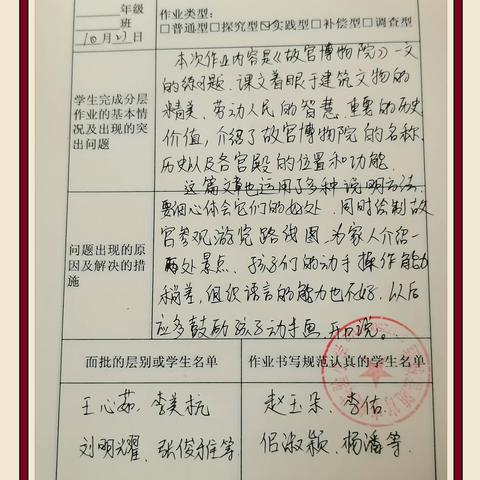 年级
班
10月27日
作业类型：
□普通型□探究型☑实践型□补偿型□调查型
学生完成分层
作业的基本情
况及出现的突
出问题
本次作业内容是《故宫博物院》一文
的练习题．课文着眼于建筑文物的
精美、劳动人民的智慧、重要的历史
价值，介绍了故宫博物院的名称、
历史以及各宫殿的位置和功能．
这篇文章也运用了多种说明方法．
问题出现的原
因及解决的措
施
要细心体会它们的妙处．同时绘制故
宫参观游览路线图，为家人介绍一
两处景点．孩子们的动手操作能力
稍差，组织语言的能力也不好．以后
应多鼓励孩子动手画，开口说。
面批的层别或学生名单
作业书写规范认真的学生名单
王心茹、李美杭
刘明耀、张俊雅等
赵玉朵、李佑
侣淑颖、杨潘等．